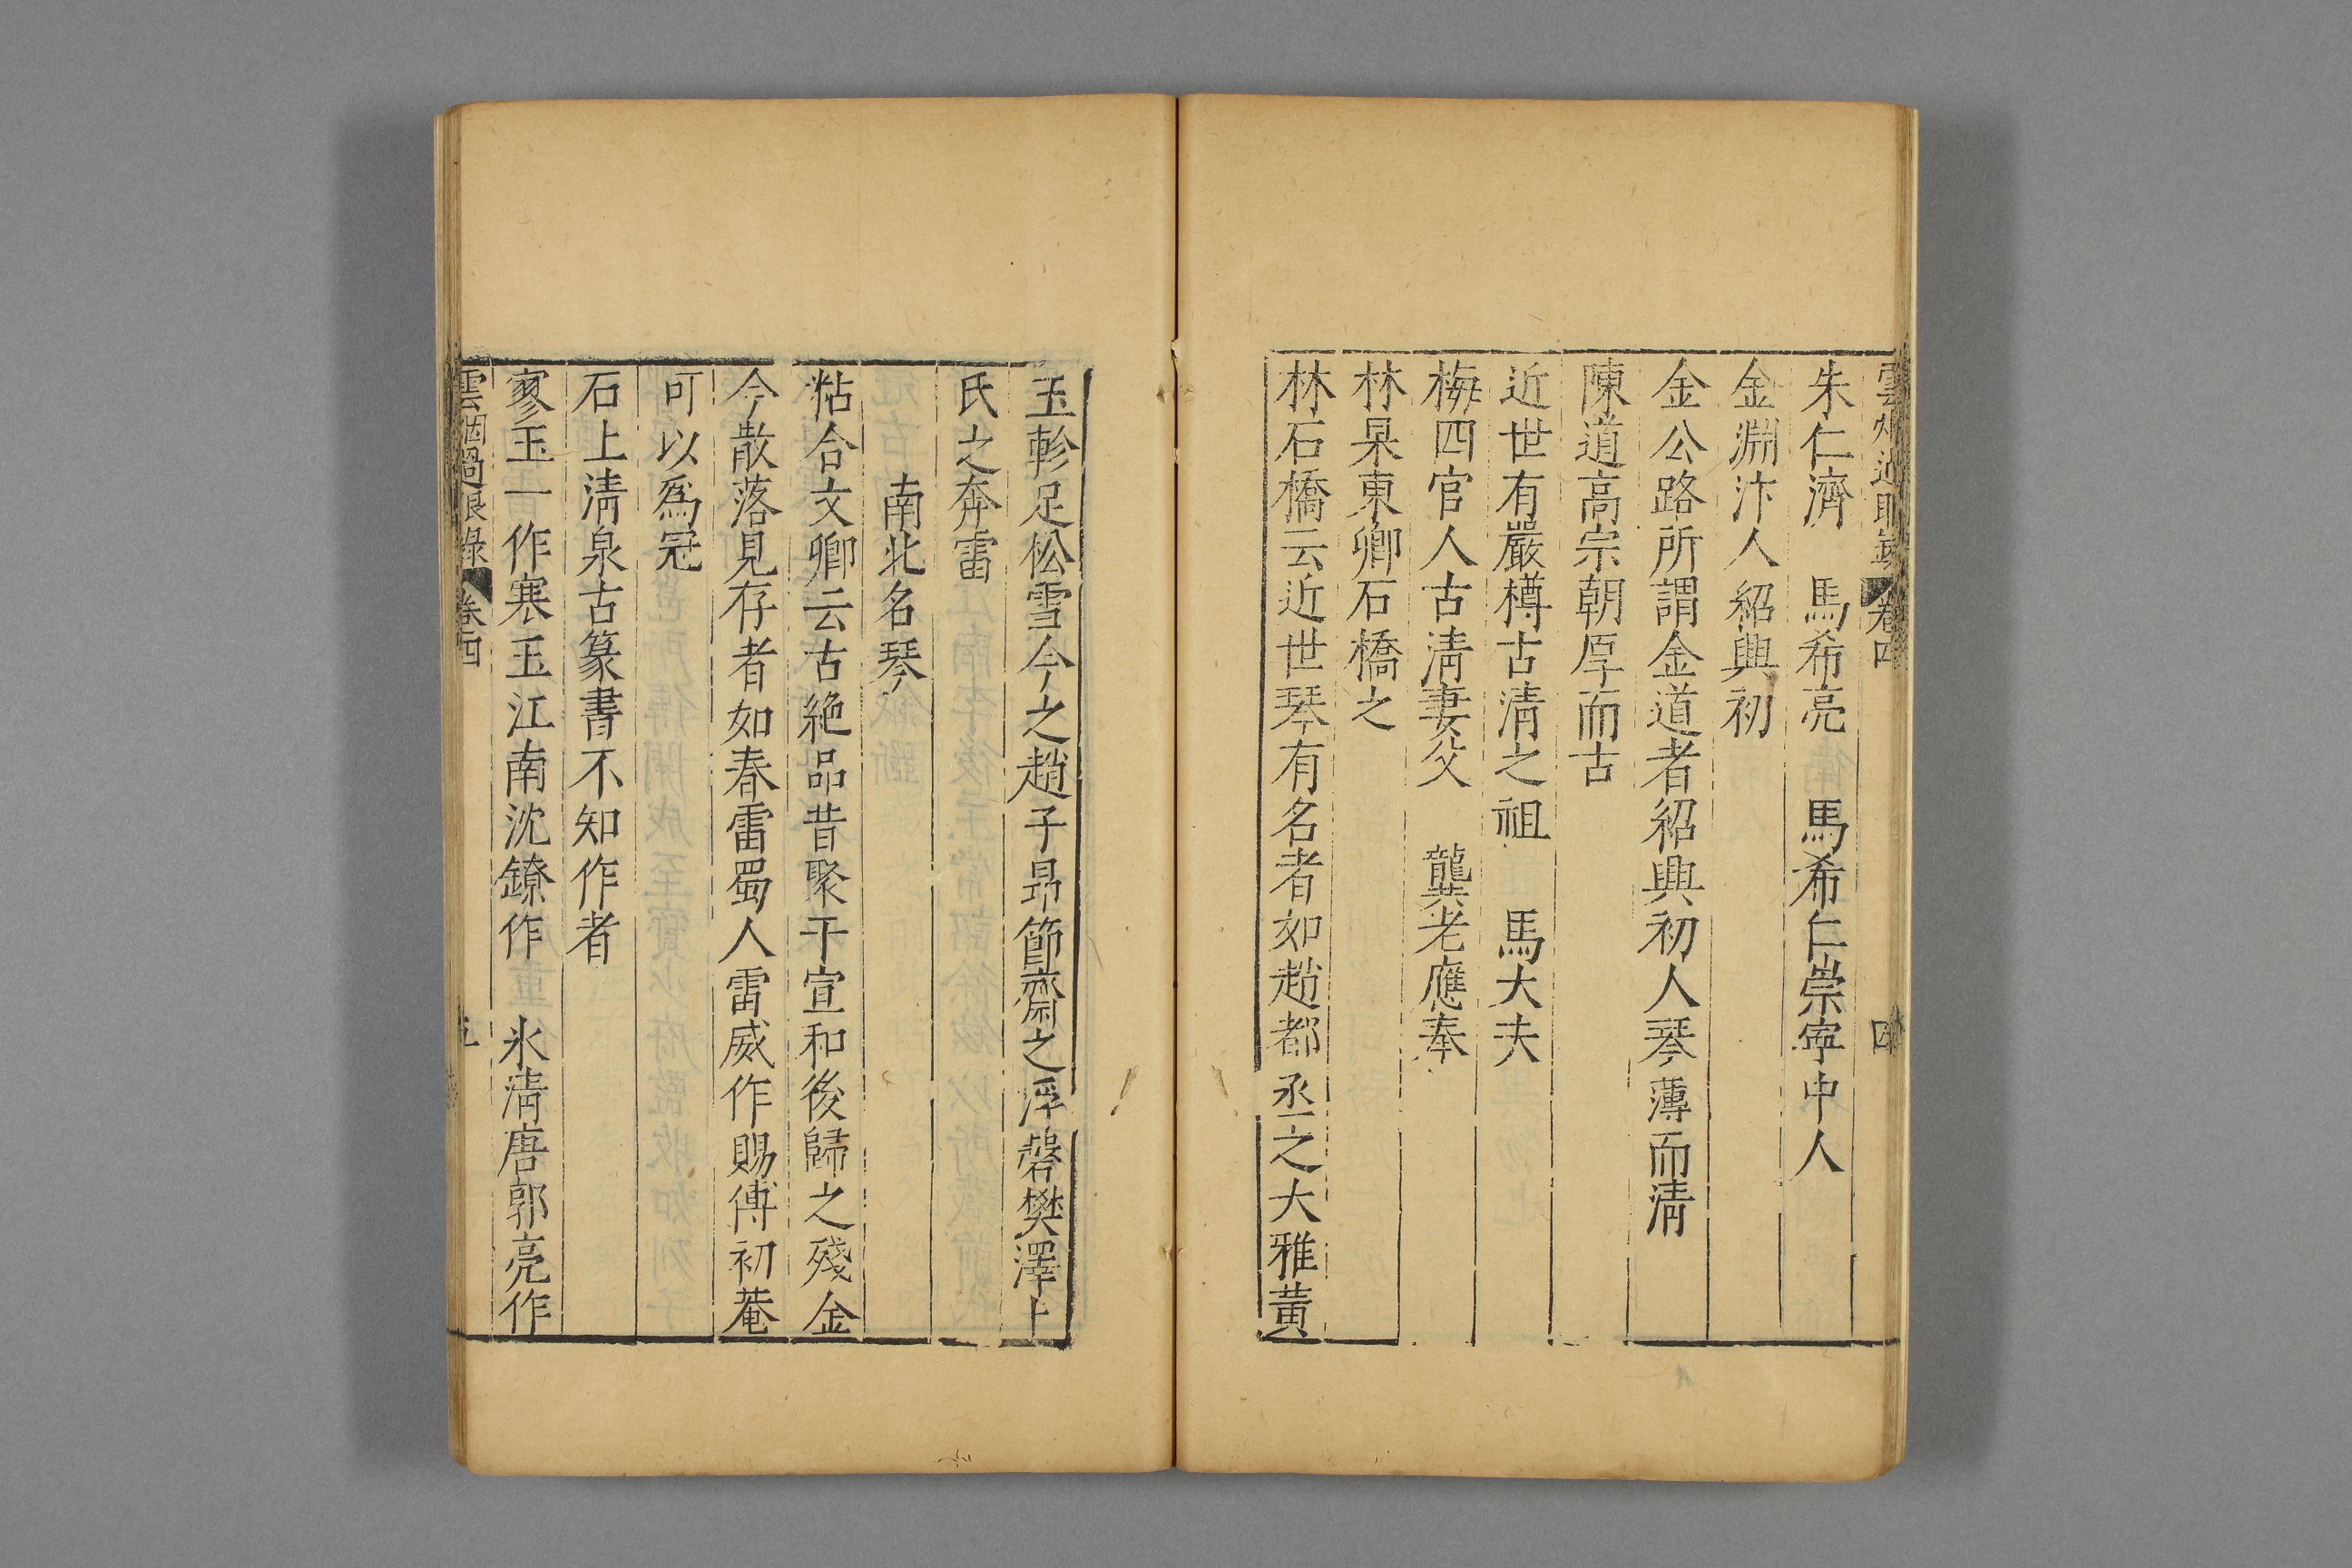 雲烟過眼錄 卷四 四
朱仁濟 馬希亮 馬希仁崇寧中人
金淵汴人紹興初
金公路所謂金道者紹興初人琴薄而清
陳道高宗朝厚而古
近世有嚴樽古清之祖 馬大夫
梅四官人古清妻父 龔老應奉
林杲東卿石橋之
林石橋云近世琴有名者如趙都丞之大雅黃
玉軫足松雪今之趙子昻節齋之浮磬樊澤上
氏之奔雷
南北名琴
粘合文卿云古絶品昔聚于宣和後歸之殘金
今散落見存者如春雷蜀人雷威作賜傅初菴
可以爲冠
石上清泉古篆書不知作者
寥玉一作寒玉江南沈鐐作 氷清唐郭亮作
雲烟過眼錄 卷四 五